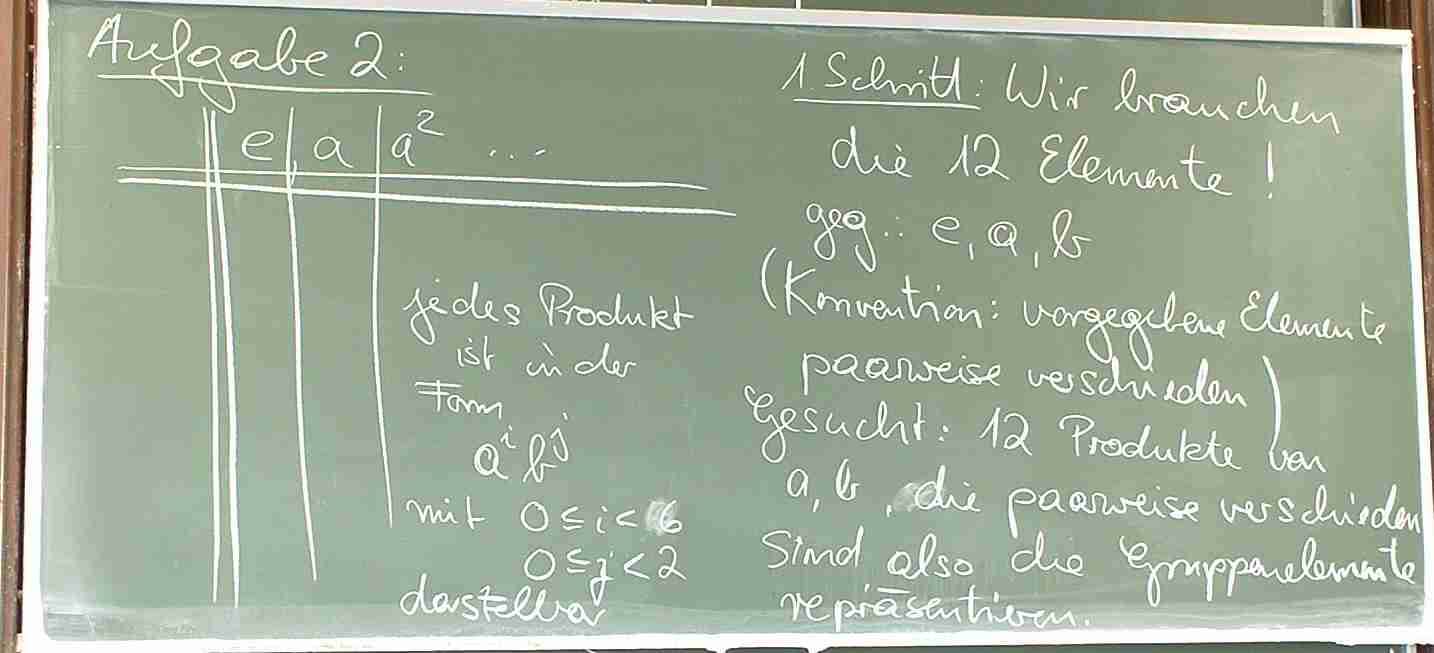 Aufgabe 2:
e a a² ...
jedes Produkt
ist in der
Form
aⁱ bʲ
mit 0 ≤ i < 6
0 ≤ j < 2
darstellbar
1. Schritt: Wir brauchen
die 12 Elemente !
geg.: e, a, b
(Konvention: vorgegebene Elemente
paarweise verschieden)
Gesucht: 12 Produkte von
a, b, die paarweise verschieden
sind also die Gruppenelemente
repräsentieren.